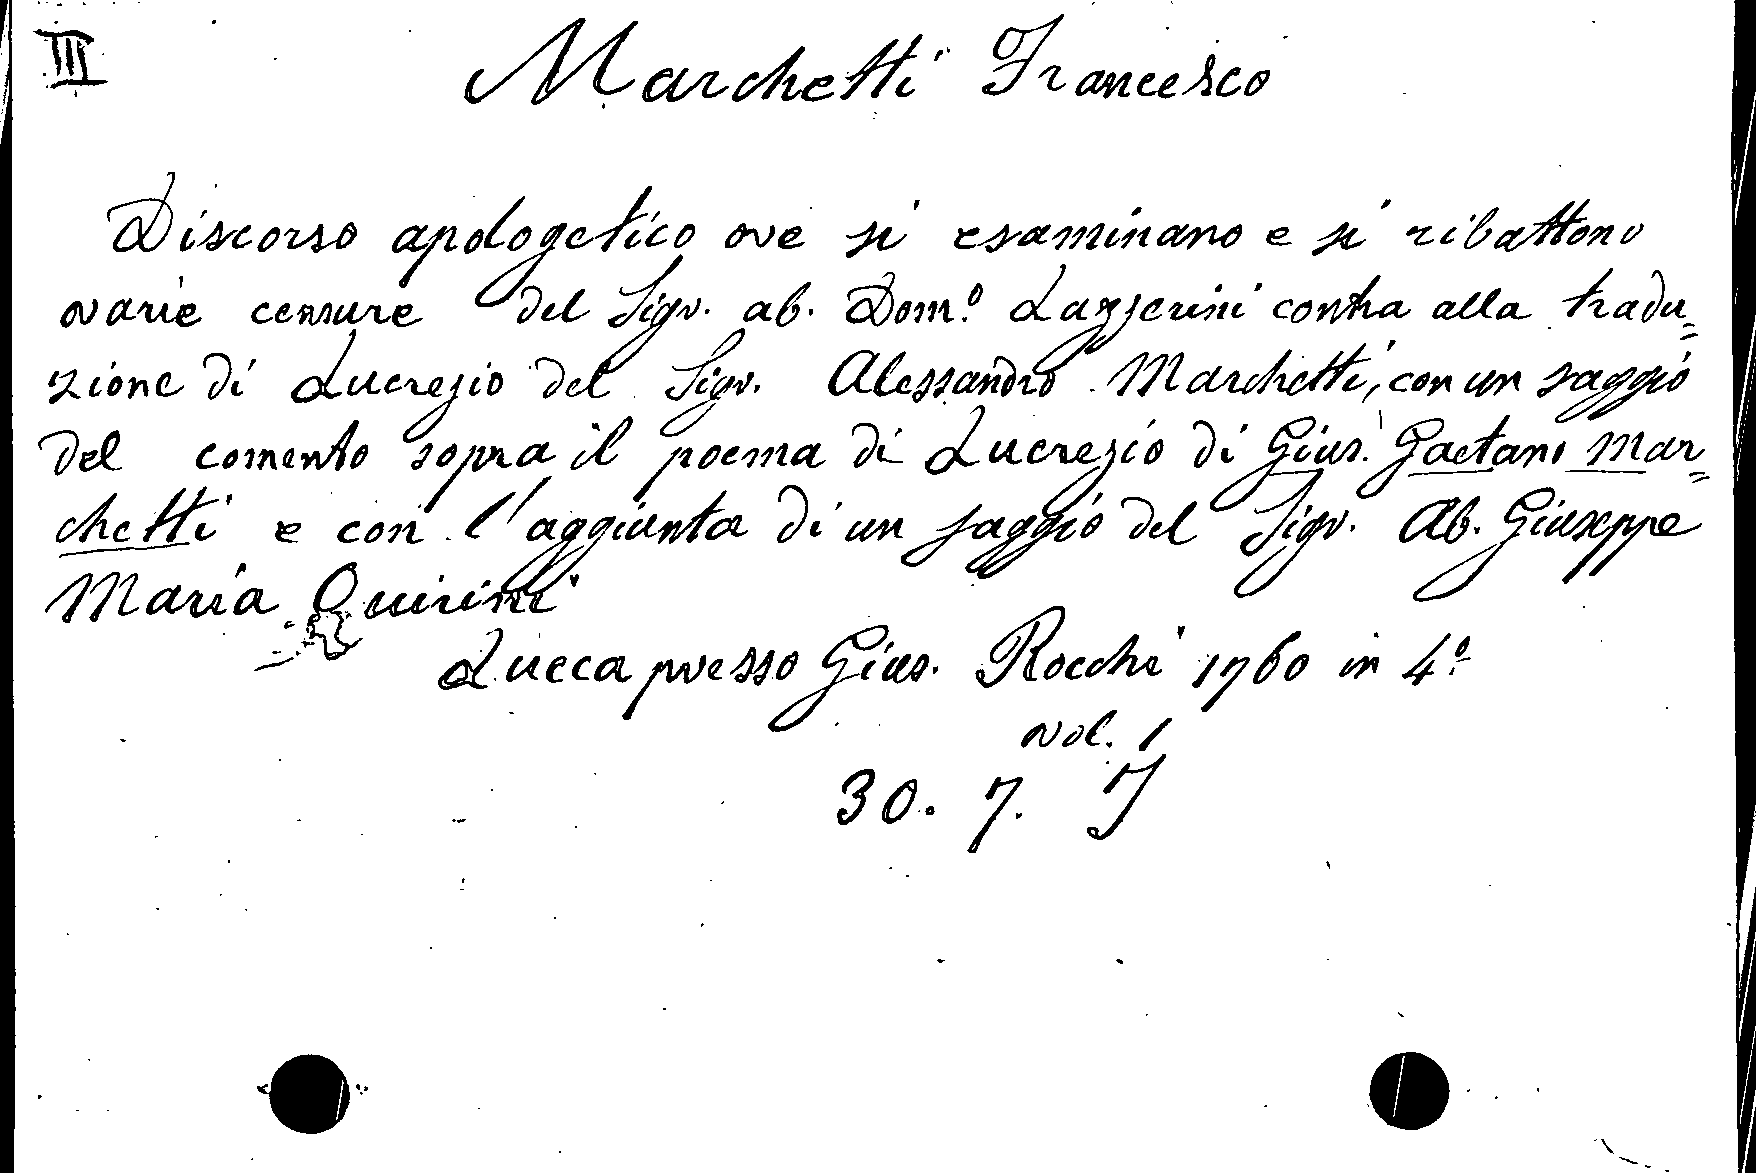 III
Marchetti Francesco
Discorso apologetico ove si esaminano e si ribattono
varie censure del Sigr. ab. Dom.º Lazzerini contra alla tradu=
zione di Lucrezio del Sigr. Alessandro Marchetti, con un saggio
del comento sopra il poema di Lucrezio di Gius. Gaetano Mar=
chetti e con l'aggiunta di un saggio del Sigr. Ab. Giuseppe
Maria Quirini
Lucca presso Gius. Rocchi 1760 in 4.º
vol. 1
30. 7. J